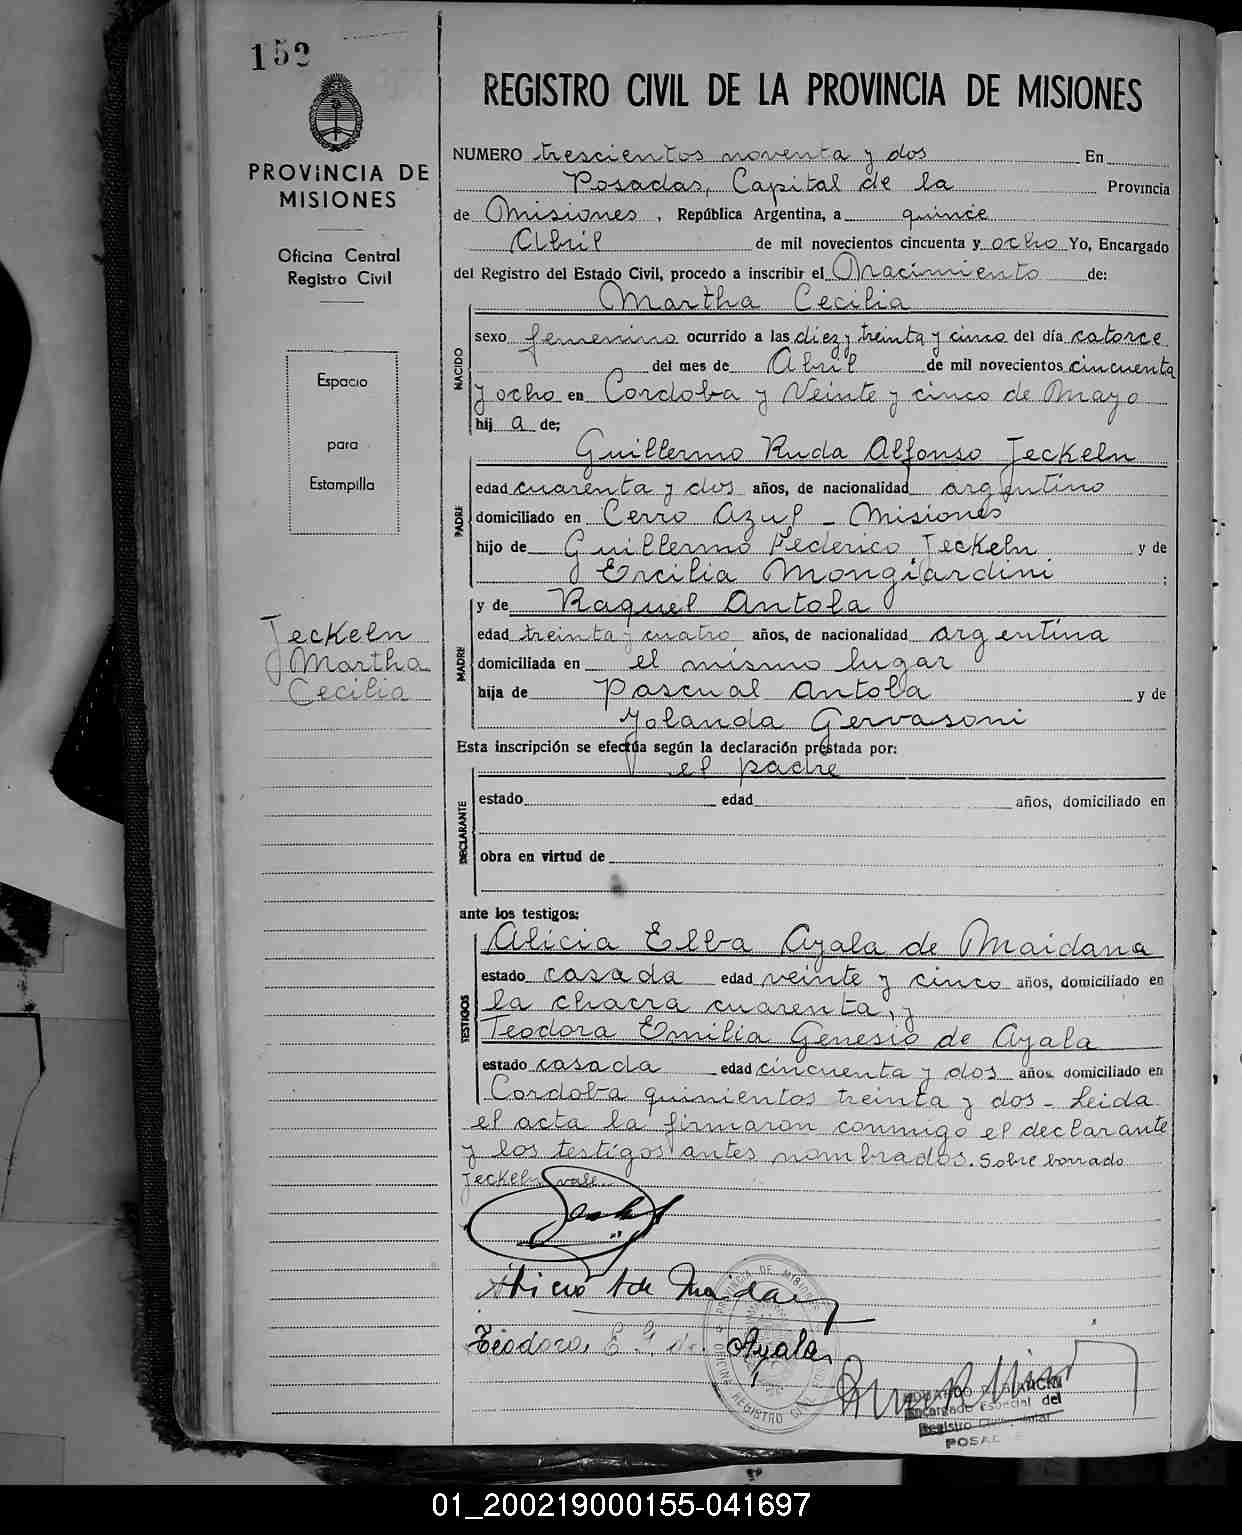 152
PROVINCIA DE
MISIONES
Oficina Central
Registro Civil
Espacio
para
Estampilla
Jeckeln
Martha
Cecilia
REGISTRO CIVIL DE LA PROVINCIA DE MISIONES
NUMERO trescientos noventa y dos En
Posadas, Capital de la Provincia
de Misiones, República Argentina, a quince
Abril de mil novecientos cincuenta y ocho Yo, Encargado
del Registro del Estado Civil, procedo a inscribir el Nacimiento de:
Martha Cecilia
NACIDO
sexo femenino ocurrido a las diez y treinta y cinco del día catorce
del mes de Abril de mil novecientos cincuenta
y ocho en Cordoba y Veinte y cinco de Mayo
hij a de;
Guillermo Ruda Alfonso Jeckeln
PADRE
edad cuarenta y dos años, de nacionalidad argentino
domiciliado en Cerro Azul - Misiones
hijo de Guillermo Federico Jeckeln y de
Ercilia Mongiardini ;
y de Raquel Antola
MADRE
edad treinta y cuatro años, de nacionalidad argentina
domiciliada en el mismo lugar
hija de Pascual Antola y de
Yolanda Gervasoni
Esta inscripción se efectúa según la declaración prestada por:
el padre
DECLARANTE
estado edad años, domiciliado en
obra en virtud de
ante los testigos:
Alicia Elba Ayala de Maidana
TESTIGOS
estado casada edad veinte y cinco años, domiciliado en
la chacra cuarenta, y
Teodora Emilia Genesio de Ayala
estado casada edad cincuenta y dos años, domiciliado en
Cordoba quinientos treinta y dos - Leida
el acta la firmaron conmigo el declarante
y los testigos antes nombrados. Sobre borrado
Jeckeln vale.
Alicia A de Maidana
Teodora E G de Ayala
Encargado Especial del
Registro Civil
POSADAS
01_200219000155-041697